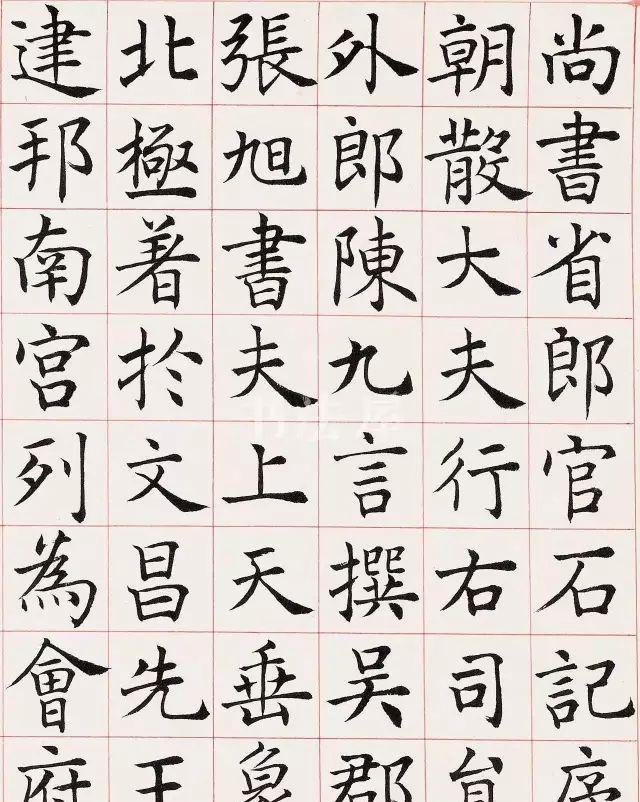 尚書省郎官石記序
朝散大夫行右司員
外郎陳九言撰吴郡
張旭書夫上天垂象
北極著扵文昌先王
建邦南宫列為會府
书法屋